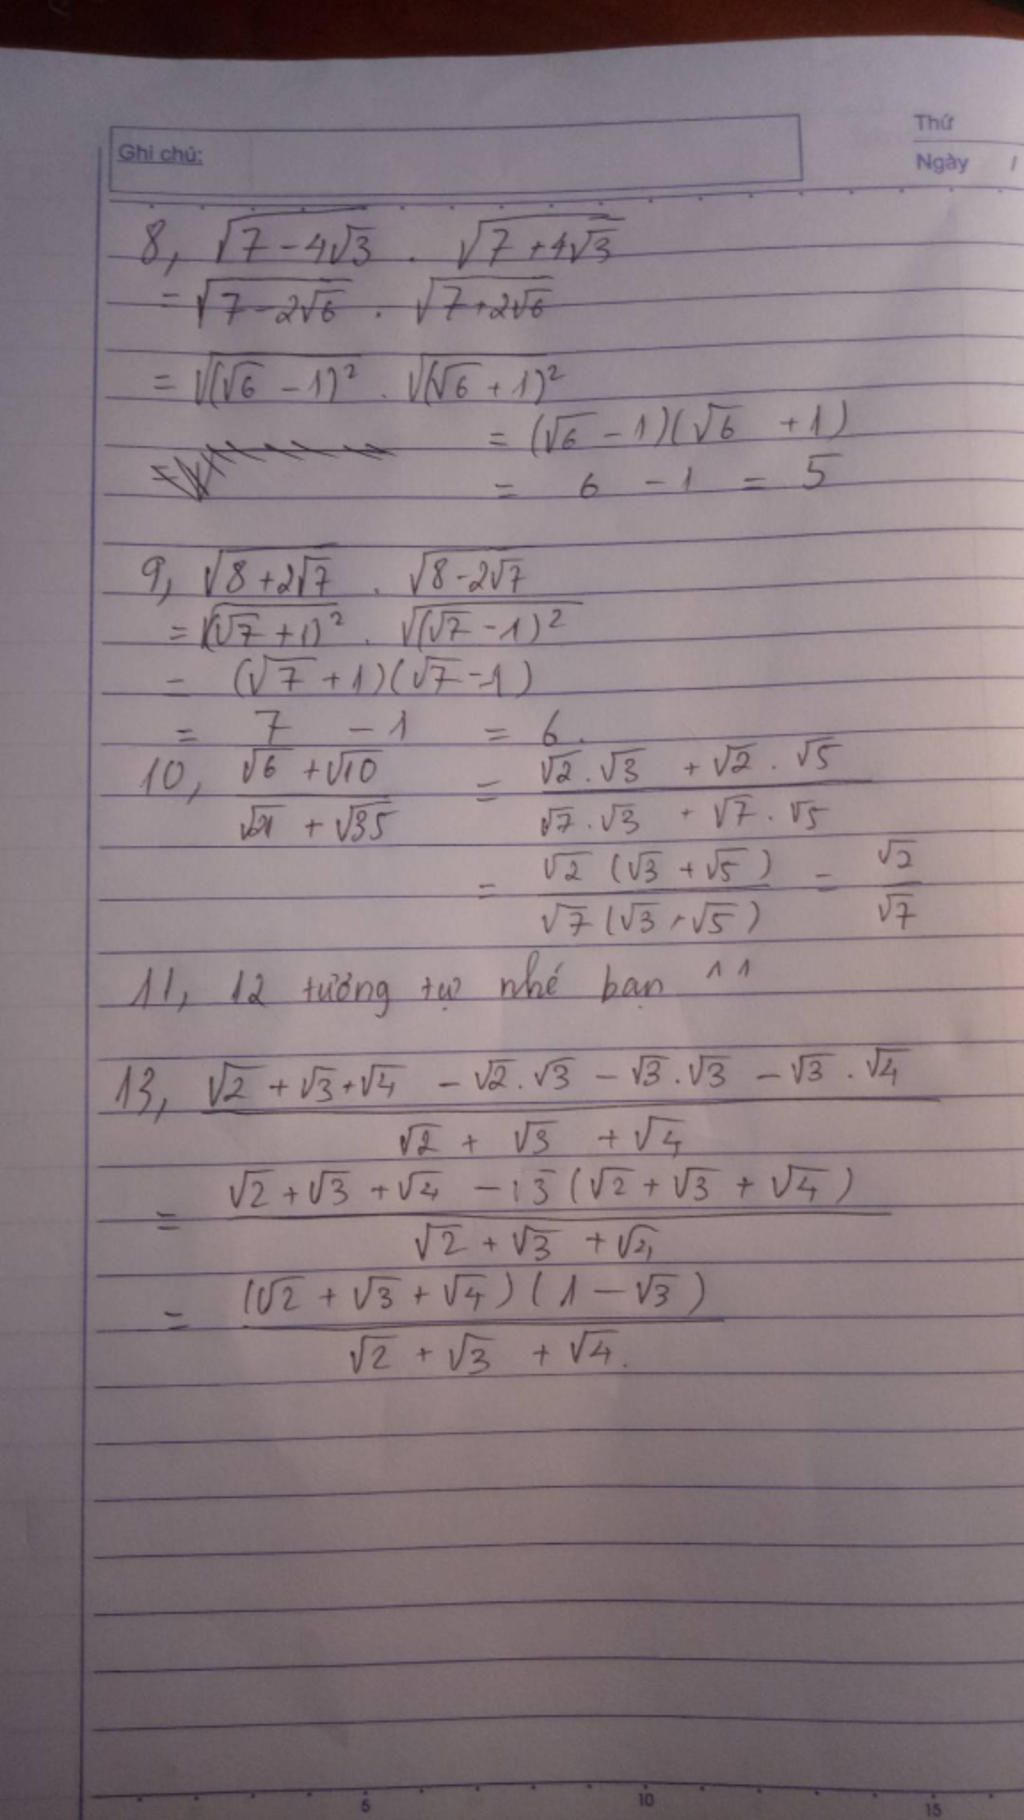 Ghi chú:
Thứ
Ngày /
8, √(7 - 4√3) . √(7 + 4√3)
= √(7 - 2√6) . √(7 + 2√6)
= √((√6 - 1)²) . √((√6 + 1)²)
= (√6 - 1)(√6 + 1)
= 6 - 1 = 5
9, √(8 + 2√7) . √(8 - 2√7)
= √((√7 + 1)²) . √((√7 - 1)²)
= (√7 + 1)(√7 - 1)
= 7 - 1 = 6.
10, (√6 + √10) / (√21 + √35) = (√2 . √3 + √2 . √5) / (√7 . √3 + √7 . √5)
= (√2 (√3 + √5)) / (√7 (√3 + √5)) = √2 / √7
11, 12 tương tự nhé bạn ^^
13, (√2 + √3 + √4 - √2 . √3 - √3 . √3 - √3 . √4) / (√2 + √3 + √4)
= (√2 + √3 + √4 - √3 (√2 + √3 + √4)) / (√2 + √3 + √4)
= ((√2 + √3 + √4)(1 - √3)) / (√2 + √3 + √4).
5 10 15